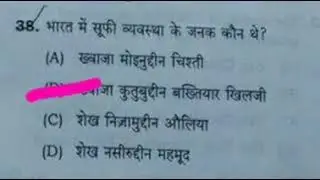 38. भारत में सूफी व्यवस्था के जनक कौन थे?
(A) ख्वाजा मोइनुद्दीन चिश्ती
कुतुबुद्दीन बख्तियार खिलजी
(C) शेख निज़ामुद्दीन औलिया
(D) शेख नसीरुद्दीन महमूद